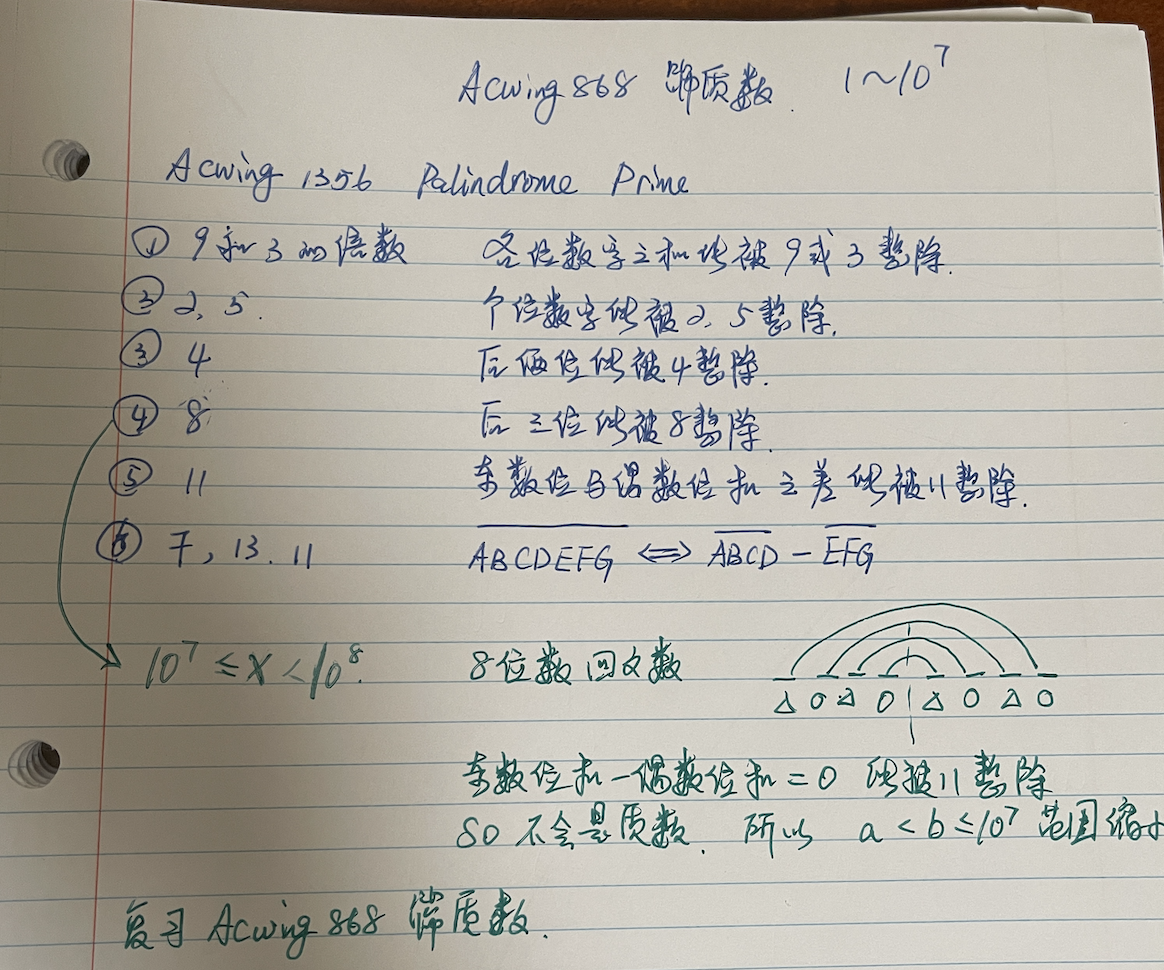 Acwing 868 筛质数. 1~10⁷
Acwing 1356 Palindrome Prime
① 9和3的倍数 各位数字之和能被9或3整除.
② 2, 5. 个位数字能被2, 5整除.
③ 4 后俩位能被4整除.
④ 8 后三位能被8整除.
⑤ 11 奇数位与偶数位和之差能被11整除.
⑥ 7, 13. 11 ABCDEFG ⇔ ABCD - EFG
10⁷ ≤ x < 10⁸. 8位数回文数
Δ O Δ O Δ O Δ O
奇数位和 - 偶数位和 = 0 能被11整除
so 不会是质数. 所以 a < b ≤ 10⁷ 范围缩小
复习 Acwing 868 筛质数.